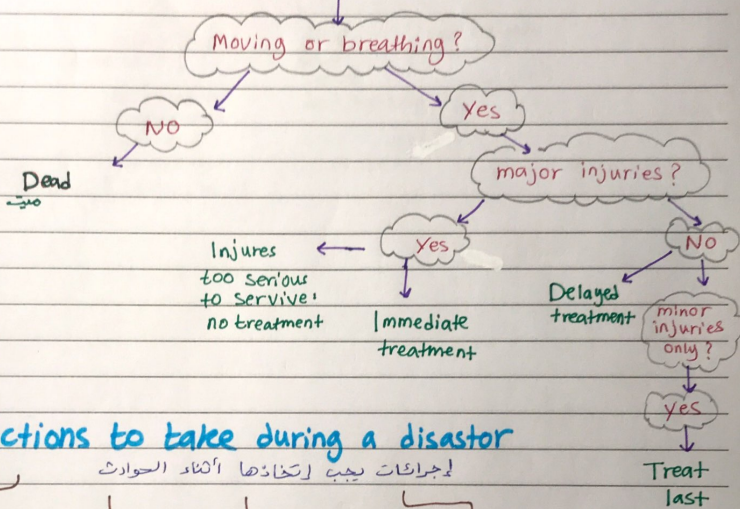 Moving or breathing?
NO
Yes
Dead
ميت
major injuries?
Yes
NO
Injures
too serious
to servive:
no treatment
Immediate
treatment
Delayed
treatment
minor
injuries
only?
yes
Treat
last
ctions to take during a disastor
إجرائات يجب إتخاذها أثناء الحوادث